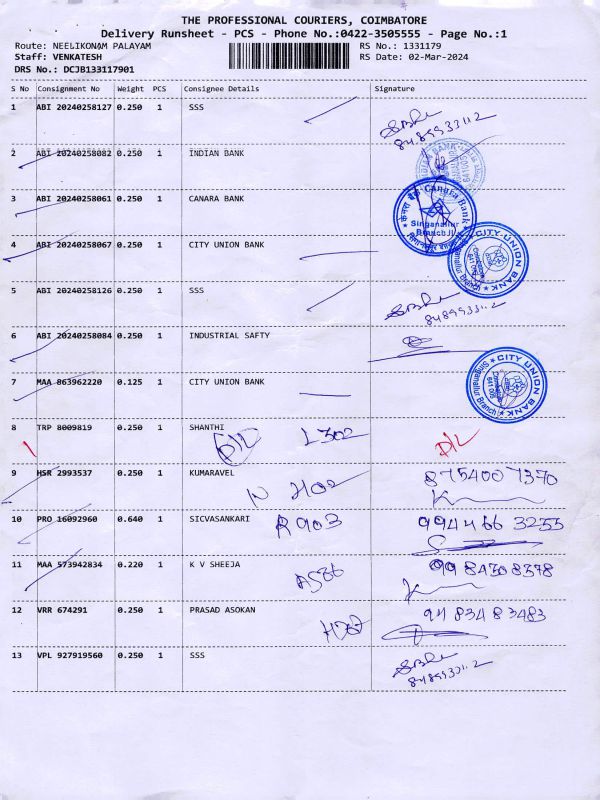 THE PROFESSIONAL COURIERS, COIMBATORE
Delivery Runsheet - PCS - Phone No.:0422-3505555 - Page No.:1
Route: NEELIKONAM PALAYAM RS No.: 1331179
Staff: VENKATESH RS Date: 02-Mar-2024
DRS No.: DCJB133117901
S No Consignment No Weight PCS Consignee Details Signature
1 ABI 20240258127 0.250 1 SSS
8489933112
2 ABI 20240258082 0.250 1 INDIAN BANK
INDIAN BANK
3 ABI 20240258061 0.250 1 CANARA BANK
केनरा बैंक Canara Bank
Singanallur
Branch II
4 ABI 20240258067 0.250 1 CITY UNION BANK
CITY UNION BANK
Singanallur Branch
5 ABI 20240258126 0.250 1 SSS
8489933112
6 ABI 20240258084 0.250 1 INDUSTRIAL SAFTY
7 MAA 863962220 0.125 1 CITY UNION BANK
CITY UNION BANK
Singanallur Branch
8 TRP 8009819 0.250 1 SHANTHI
D/L L302 D/L
9 HSR 2993537 0.250 1 KUMARAVEL 8754007370
N H02
10 PRO 16092960 0.640 1 SICVASANKARI R903 9944663255
11 MAA 573942834 0.220 1 K V SHEEJA 9984308378
A586
12 VRR 674291 0.250 1 PRASAD ASOKAN 9483483483
13 VPL 927919560 0.250 1 SSS